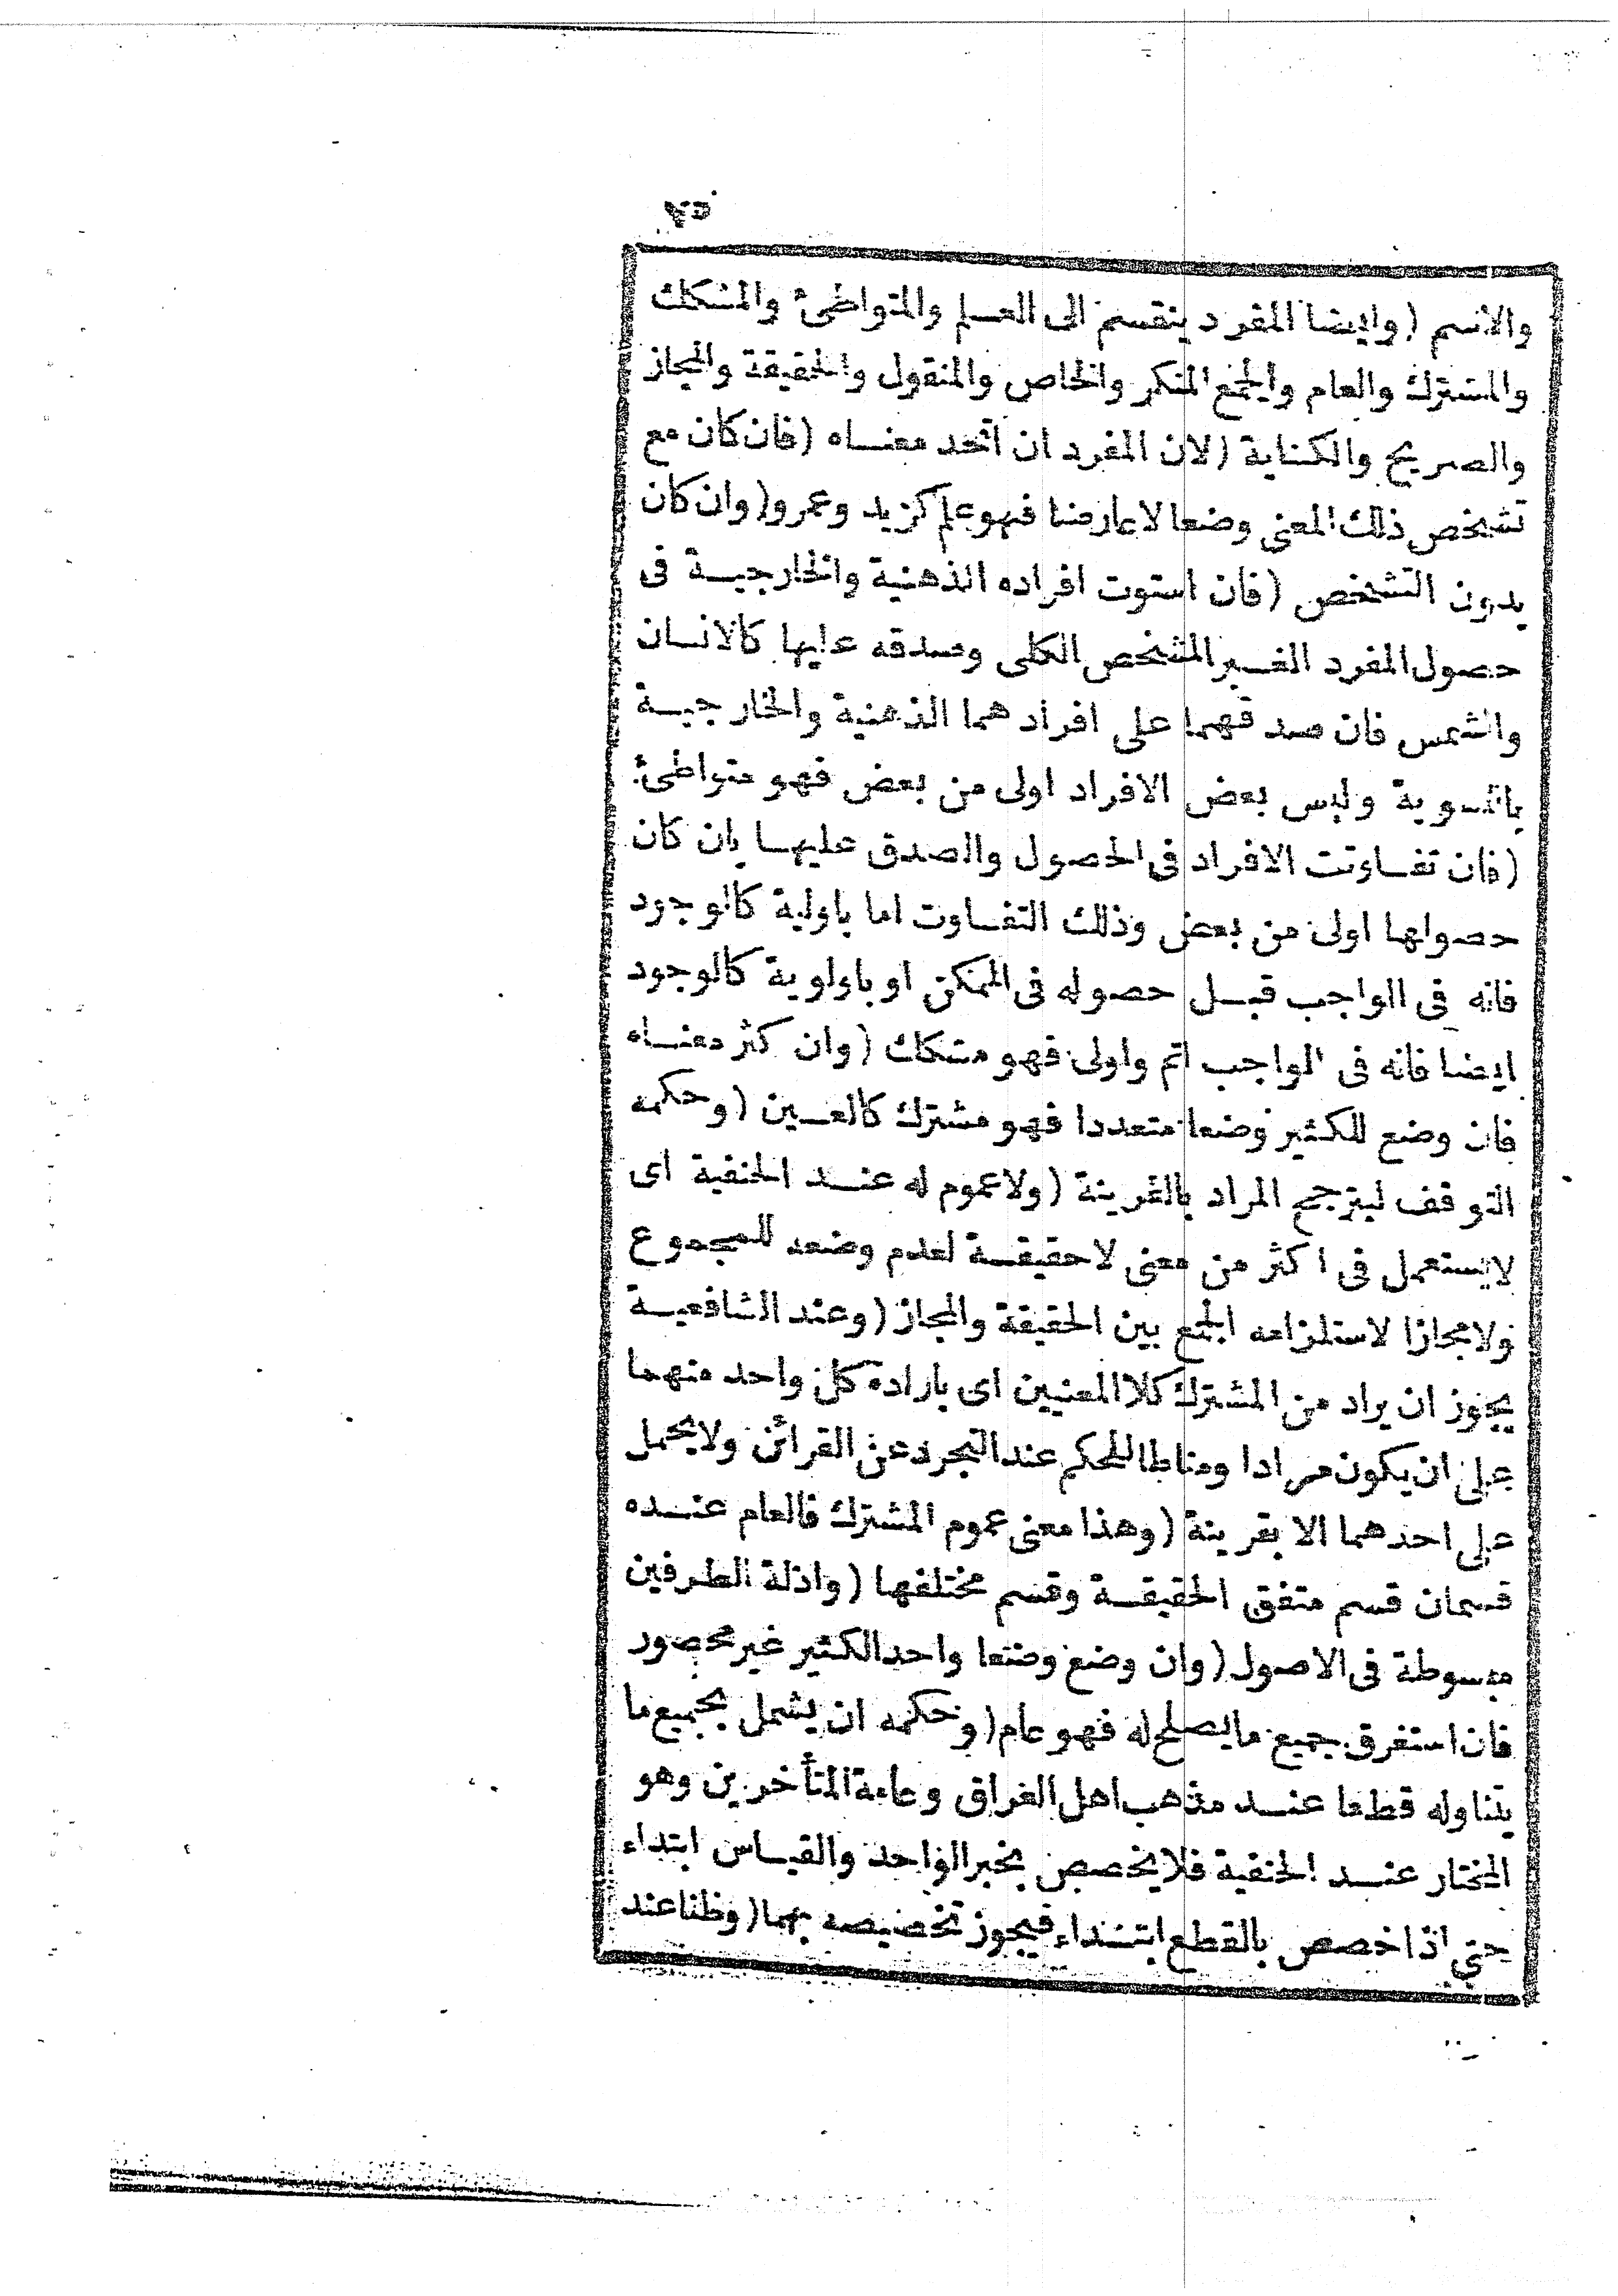 والاسم (وايضا المفرد ينقسم الى العلم والمتواطئ والمشكك
والمشترك والعام والجمع المنكر والخاص والمنقول والحقيقة والمجاز
والصريح والكناية (لان المفرد ان اتحد معناه (فان كان مع
تشخص ذلك المعنى وضعا لا عارضا فهو علم كزيد وعمرو (وان كان
بدون التشخص (فان استوت افراده الذهنية والخارجية فى
حصول المفرد الغير المشخص الكلى وصدقه عليها كالانسان
والشمس فان صدقهما على افرادهما الذهنية والخارجية
بالتسوية وليس بعض الافراد اولى من بعض فهو متواطئ
(فان تفاوتت الافراد فى الحصول والصدق عليها بان كان
حصولها اولى من بعض وذلك التفاوت اما باولية كالوجود
فانه فى الواجب قبل حصوله فى الممكن او باولوية كالوجود
ايضا فانه فى الواجب اتم واولى فهو مشكك (وان كثر معناه
فان وضع للكثير وضعا متعددا فهو مشترك كالعين (وحكمه
التوقف ليترجح المراد بالقرينة (ولا عموم له عند الحنفية اى
لا يستعمل فى اكثر من معنى لا حقيقة لعدم وضعه للمجموع
ولا مجازا لاستلزامه الجمع بين الحقيقة والمجاز (وعند الشافعية
يجوز ان يراد من المشترك كلا المعنيين اى باراده كل واحد منهما
على ان يكون مرادا ومناطا للحكم عند التجرد عن القرائن ولا يحمل
على احدهما الا بقرينة (وهذا معنى عموم المشترك فالعام عنده
قسمان قسم متفق الحقيقة وقسم مختلفها (وادلة الطرفين
مبسوطة فى الاصول (وان وضع وضعا واحدا لكثير غير محصور
فان استغرق جميع ما يصلح له فهو عام (وحكمه ان يشمل بجميع ما
يتناوله قطعا عند مذهب اهل العراق وعامة المتأخرين وهو
المختار عند الحنفية فلا يخصص بخبر الواحد والقياس ابتداء
حتى اذا خصص بالقطع ابتداء فيجوز تخصيصه بهما (وظنا عند